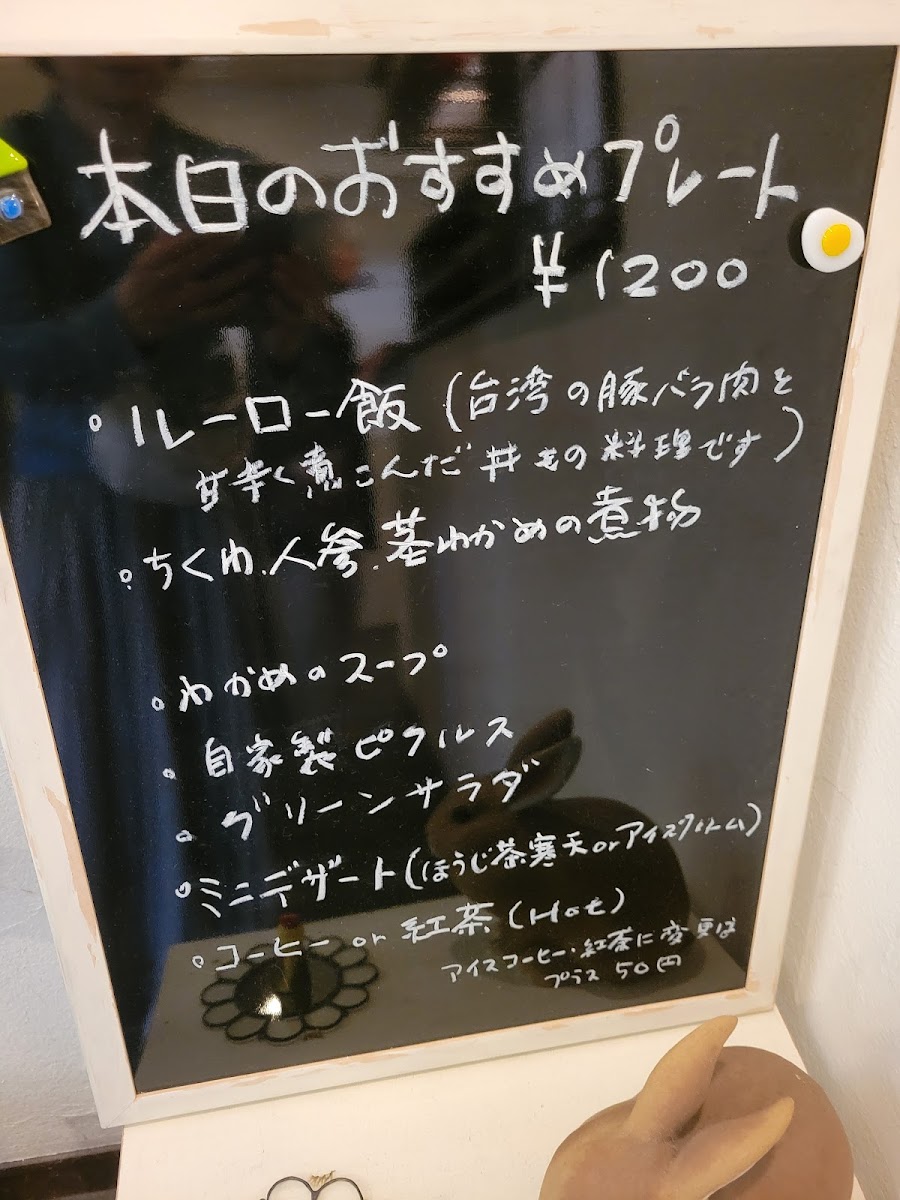 本日のおすすめプレート
¥1200
。ルーロー飯(台湾の豚バラ肉を
甘辛く煮こんだ丼もの料理です)
。ちくわ、人参、茎わかめの煮物
。わかめのスープ
。自家製ピクルス
。グリーンサラダ
。ミニデザート(ほうじ茶寒天orアイスクリーム)
。コーヒー or 紅茶(Hot)
アイスコーヒー・紅茶に変更は
プラス 50円